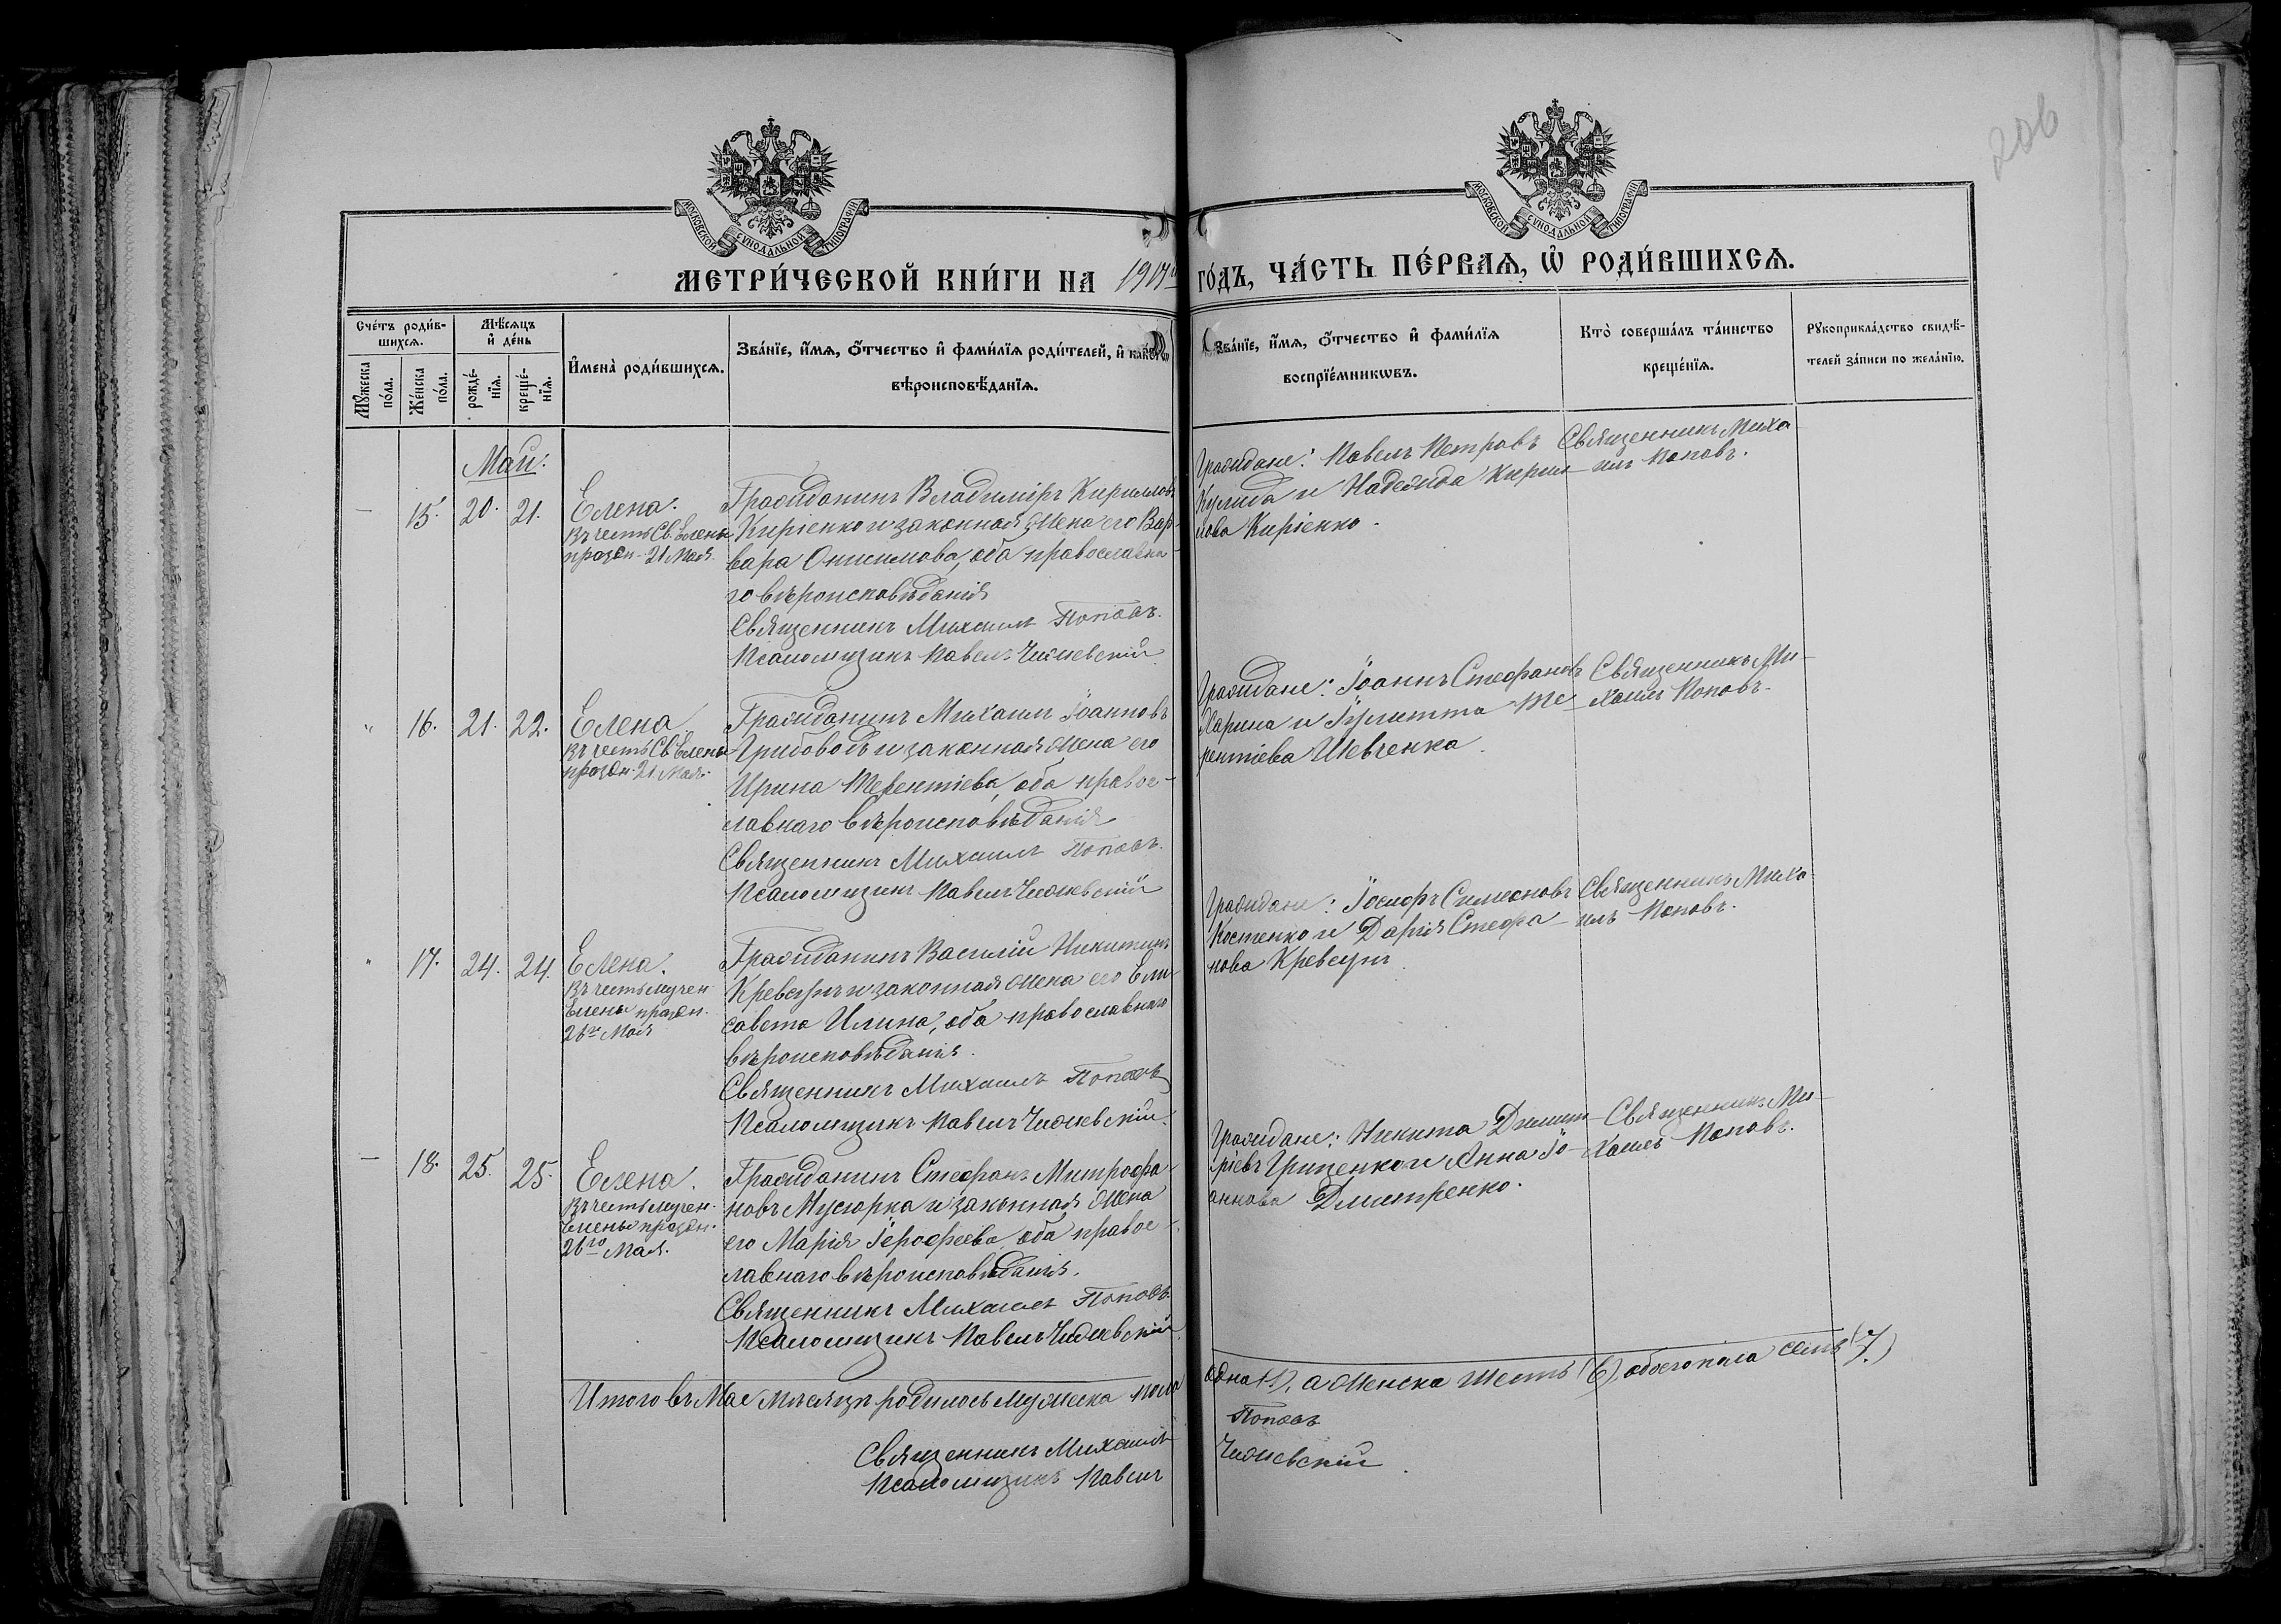 206
МОСКОВСКОЙ СѴНОДАЛЬНОЙ ТИПОГРАФІИ
МОСКОВСКОЙ СѴНОДАЛЬНОЙ ТИПОГРАФІИ
МЕТРИ́ЧЕСКОЙ КНИ́ГИ НА
ГО́ДЪ, ЧА́СТЬ ПЕ́РВАѦ, Ѡ҆ РОДИ́ВШИХСѦ.
Сче́тъ роди́в-
шихсѧ.
Мꙋ́жеска по́ла.
Же́нска по́ла.
Мѣ́сѧцъ и҆ де́нь
рожде́-
нїѧ.
креще́-
нїѧ.
И҆мена̀ роди́вшихсѧ.
Зва́нїе, и҆́мѧ, ѻ҆́тчество и҆ фами́лїѧ роди́телей, и҆ како́гѡ
вѣроисповѣ́данїѧ.
Зва́нїе, и҆́мѧ, ѻ҆́тчество и҆ фами́лїѧ
воспрїе́мникѡвъ.
Кто̀ соверша́лъ та́инство
креще́нїѧ.
Рꙋкоприкла́дство свидѣ́-
телей за́писи по жела́нїю.
Май.
15. 20. 21. Елена.
Въ честь Св. Елены
праздн. 21 Мая.
Гражданинъ Владиміръ Кирилловъ
Киріенко и законная жена его Вар-
вара Онисимова, оба православна-
го вѣроисповѣданія
Священникъ Михаилъ Поповъ.
Псаломщикъ Павелъ
Граждане: Павелъ Петровъ
и Надежда Кирил-
лова Киріенко.
Священникъ Миха-
илъ Поповъ.
16. 21. 22. Елена
Въ честь Св. Елены
праздн. 21 Мая.
Гражданинъ Михаилъ Іоанновъ
Грибоводъ и законная жена его
Ирина Терентіева, оба правос-
лавнаго вѣроисповѣданія
Священникъ Михаилъ Поповъ.
Псаломщикъ Павелъ
Граждане: Іоаннъ Стефановъ
Харина и Іулитта Те-
рентіева Шевченка.
Священникъ Ми-
хаилъ Поповъ.
17. 24. 24. Елена.
Въ честь мучен.
Елены праздн.
26го Мая
Гражданинъ Василій Никитинъ
и законная жена его Ели-
савета Илина, оба православнаго
вѣроисповѣданія.
Священникъ Михаилъ Поповъ
Псаломщикъ Павелъ
Граждане: Іосифъ Симеоновъ
Костенко и Дарія Стефа-
нова
Священникъ Миха-
илъ Поповъ.
18. 25. 25. Елена.
Въ честь мучен.
Елены праздн.
26го Мая.
Гражданинъ Стефанъ Митрофа-
новъ и законная жена
его Марія Іерофеева, оба правос-
лавнаго вѣроисповѣданія.
Священникъ Михаилъ Поповъ.
Псаломщикъ Павелъ
Граждане: Никита Димит-
ріевъ Гриценко и Анна Іо-
аннова Дмитренко.
Священникъ Ми-
хаилъ Поповъ.
Итого въ Мае мѣсяцѣ родилось мужеска пола
одна (1), а женска шесть (6), обоего пола семь (7)
Священникъ Михаилъ Поповъ
Псаломщикъ Павелъ